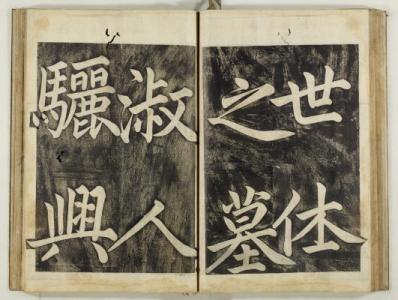 世休
之墓
淑人
驪興